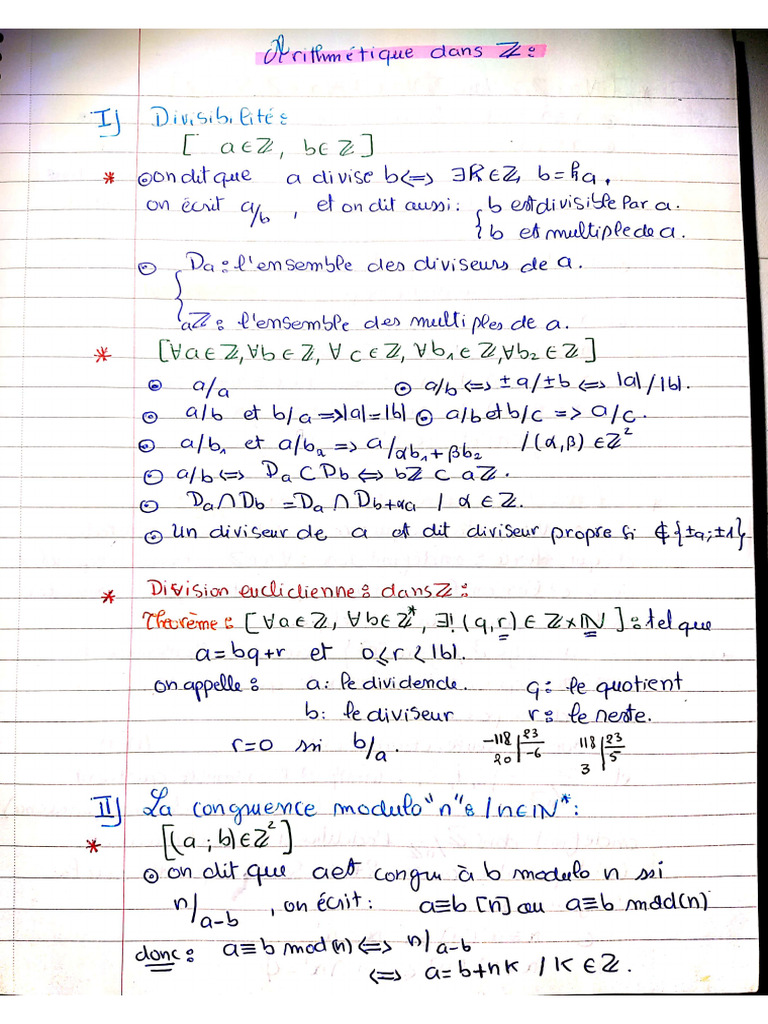 Arithmétique dans ℤ:
I) Divisibilité:
[ a∈ℤ, b∈ℤ ]
* ⊙ on dit que a divise b <=> ∃k∈ℤ, b=ka,
on écrit a/b , et on dit aussi: { b est divisible Par a.
{ b et multiple de a.
⊙ { Da: l'ensemble des diviseurs de a.
aℤ: l'ensemble des multiples de a.
* [∀a∈ℤ, ∀b∈ℤ, ∀c∈ℤ, ∀b₁∈ℤ, ∀b₂∈ℤ]
⊙ a/a ⊙ a/b <=> ±a/±b <=> |a|/|b|.
⊙ a/b et b/a => |a|=|b| ⊙ a/b et b/c => a/c.
⊙ a/b₁ et a/b₂ => a/αb₁+βb₂ /(α,β)∈ℤ²
⊙ a/b <=> Da⊂Db <=> bℤ⊂aℤ.
⊙ Da∩Db = Da∩Db+αa / α∈ℤ.
⊙ Un diviseur de a est dit diviseur propre si ∉{±a;±1}
* Division euclidienne: dans ℤ:
Théorème: [∀a∈ℤ, ∀b∈ℤ*, ∃!(q,r)∈ℤ×ℕ]: tel que
a=bq+r et 0≤r<|b|.
on appelle: a: le dividende. q: le quotient
b: le diviseur r: le reste.
r=0 ssi b/a. -118 | 23 118 | 23
20 | -6 3 | 5
II) La congruence modulo "n": /n∈ℕ*:
* [(a;b)∈ℤ²]
⊙ on dit que a est congru à b modulo n ssi
n/a-b , on écrit: a≡b [n] ou a≡b mod(n)
donc: a≡b mod(n) <=> n/a-b
<=> a=b+nK /K∈ℤ.